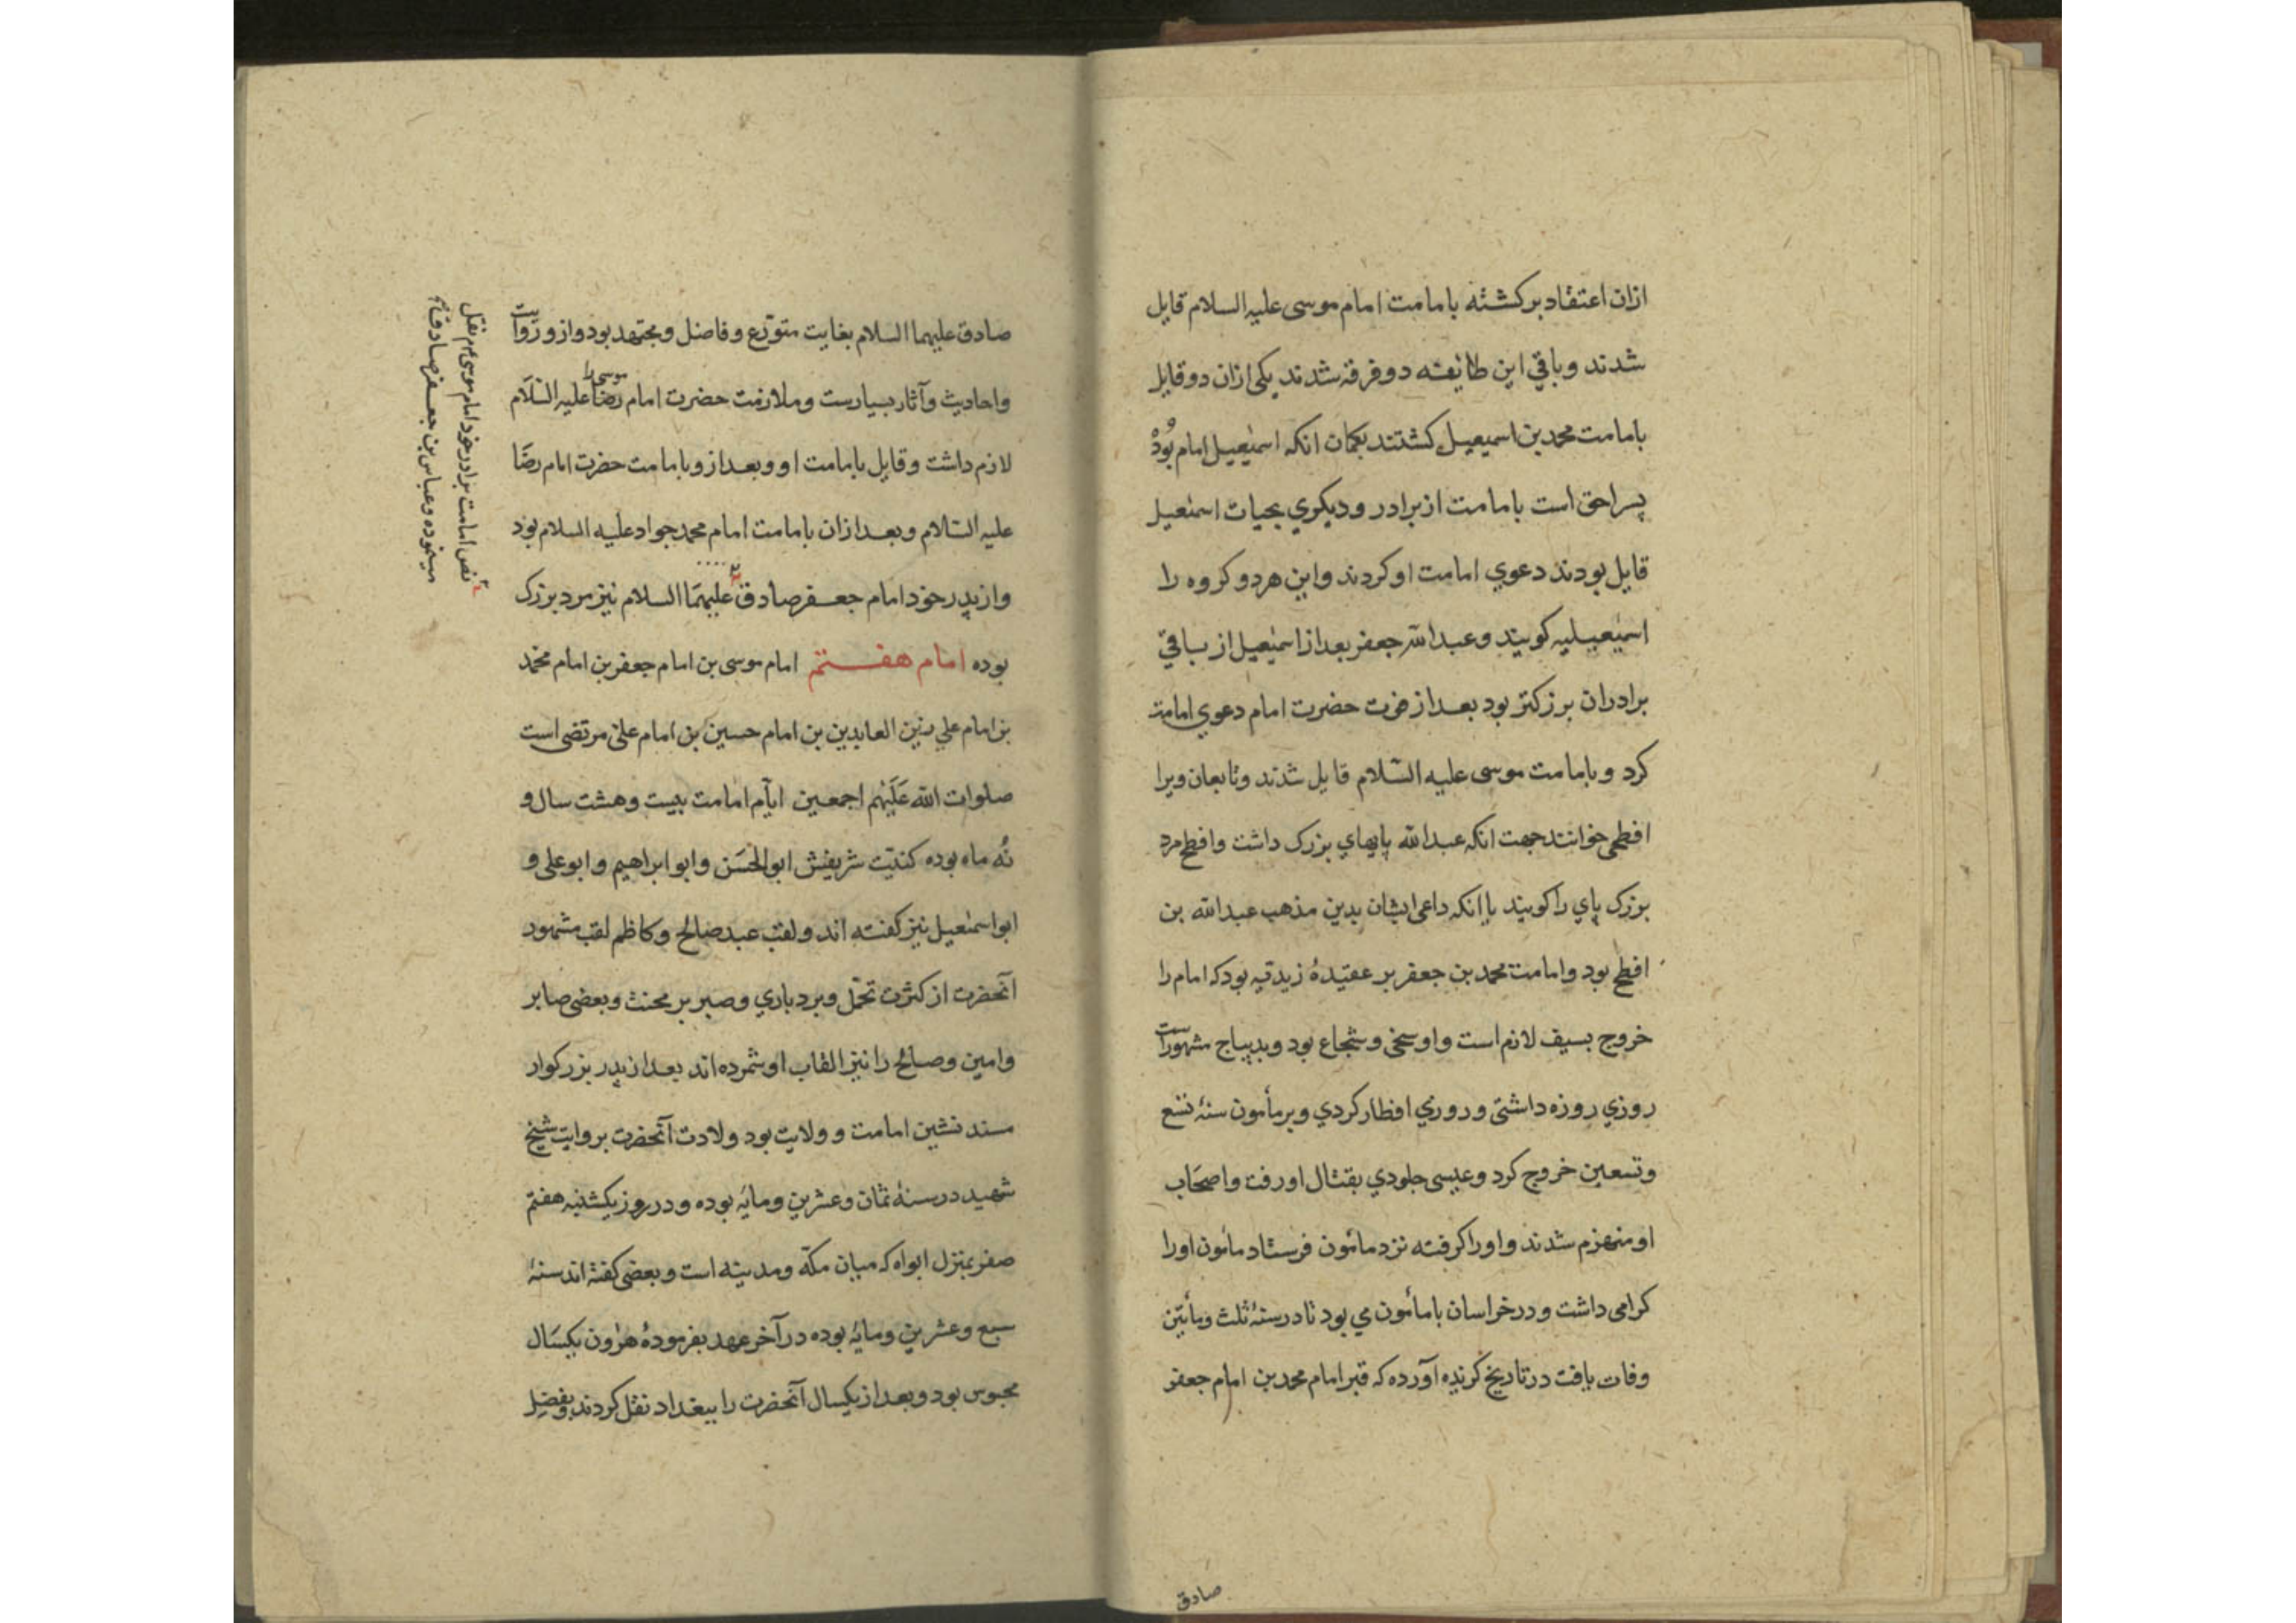 ازان اعتقاد برکشته بامامت امام موسی علیه السلام قایل
شدند و باقي این طایفه دو فرقه شدند یکی ازان دو قایل
بامامت محمد بن اسمیعیل کشتند بکمان انکه اسمٰیعیل امام بُوذْ
پسر احق است بامامت از برادر و دیکري بحیات اسمٰعیل
قایل بودند دعوي امامت او کردند و این هر دو کروه را
اسمٰیعیلیه کویند و عبدالله جعفر بعد از اسمٰیعیل از باقي
برادران بزرکتر بود بعد از فوت حضرت امام دعوي امامت
کرد و بامامت موسی علیه السّلام قایل شدند و تابعان ویرا
افطحی خوانند جهت انکه عبدالله پایهاي بزرک داشت و افطح مرد
بزرک پاي را کویند یا انکه داعی ایشان بدین مذهب عبدالله بن
افطح بود و امامت محمد بن جعفر بر عقیدهٔ زیدیه بود که امام را
خروج بسیف لازم است و او سخی و شجاع بود و بدیباج مشهور است
روزي روزه داشتی و روزي افطار کردي و بر مأمون سنهٔ تسع
و تسعین خروج کرد و عیسی جلودي بقتال او رفت و اصحَاب
او منهزم شدند و او را کرفته نزد مائمون فرستاد مائمون او را
کرامی داشت و در خراسان با مأمون می بود تا در سنهٔ ثلث و مأتین
وفات یافت در تاریخ کزیده آورده که قبر امام محمد بن امام جعفر
صادق
صادق علیهما السلام بغایت متورّع و فاضل و مجتهد بود و ازو روایت
و احادیث و آثار بسیارست و ملازمت حضرت امام رضا علیه السّلام
موسی را
لازم داشت و قایل بامامت او و بعد ازو بامامت حضرت امام رضَا
علیه السّلام و بعد ازان بامامت امام محمد جواد علیه السلام بود
و از پدر خود امام جعفر صادق علیهمَا السلام نیز مرد بزرک
بوده امام هفتم امام موسی بن امام جعفر بن امام محمد
بن امام علي زین العابدین بن امام حسین بن امام علی مرتضی است
صلوات الله عَلَیهم اجمعین ایّام امامت بیست و هشت سال و
نُه ماه بوده کنیّت شریفش ابوالحَسَن و ابو ابراهیم و ابو علی و
ابو اسمٰعیل نیز کفته اند و لقب عبد صالح و کاظم لقب مشهور
آنحضرت از کثرت تحمّل و بردباري و صبر بر محنت و بعضی صابر
و امین و صالح را نیز القاب او شمرده اند بعد از پدر بزرکوار
مسند نشین امامت و ولایت بود ولادت آنحضرت بروایت شیخ
شهید در سنهٔ ثمان و عشرین و مایٔه بوده و در روز یکشنبه هفتم
صفر بمنزل ابواه که میان مکّه و مدینه است و بعضی کفته اند سنهٔ
سبع و عشرین و مایٔه بوده در آخر عهد بفرمودهٔ هرٰون یکسَال
محبوس بود و بعد از یکسال آنحضرت را ببغداد نقل کردند و بفضل
نص امامت برادر خود امام موسی م نقل
مینموده و عباس بن جعفر صادق